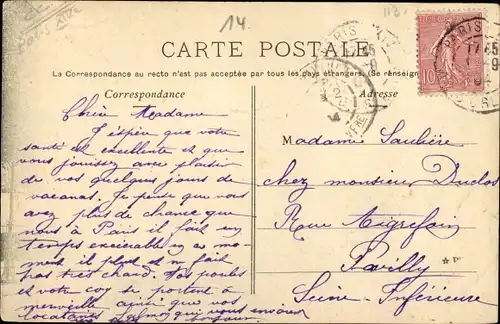 14
CARTE POSTALE
La Correspondance au recto n'est pas acceptée par tous les pays étrangers. (Se renseign
Correspondance
Adresse
PARIS
10
Chère Madame
J'espère que votre
santé est excellente et que
vous jouissez avec plaisir
de vos quelques jours de
vacances. Je pense que vous
avez plus de chance que
nous à Paris il fait un
temps exécrable en ce mo-
ment il pleut et n fait
pas très chaud. Vos poules
et votre coq se portent à
merveille ainsi que vos
locataires qui vous envoient
bonjour
Madame Saulière
chez monsieur Duclos
Rue Aigrefoin
Pavilly
Seine-Inférieure